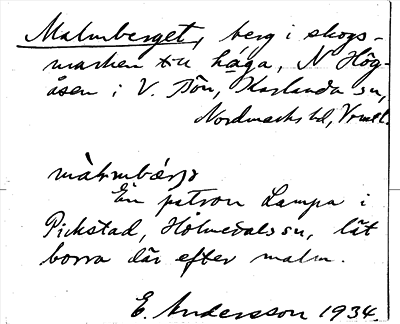 Malmberget, berg i skogs-
marken till håga, N Hög-
åsen i V. Bön, Karlanda sn,
Nordmarks hd, Vrml.
màlmbár̡jə
En patron Lampa i
Pickstad, Holmedals sn, lät
borra där efter malm.
E. Andersson 1934.